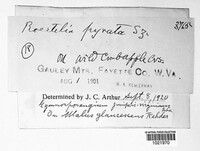 Roestelia pyrata Sz.
On wild crabapple lvs.
GAULEY MTS. FAYETTE CO. W. VA.
AUG 1901
Determined by J. C. Arthur Sept. 8, 1920
Gymnosporangium juniperi-virginianae
On Malus glaucescens Rehder
1021970